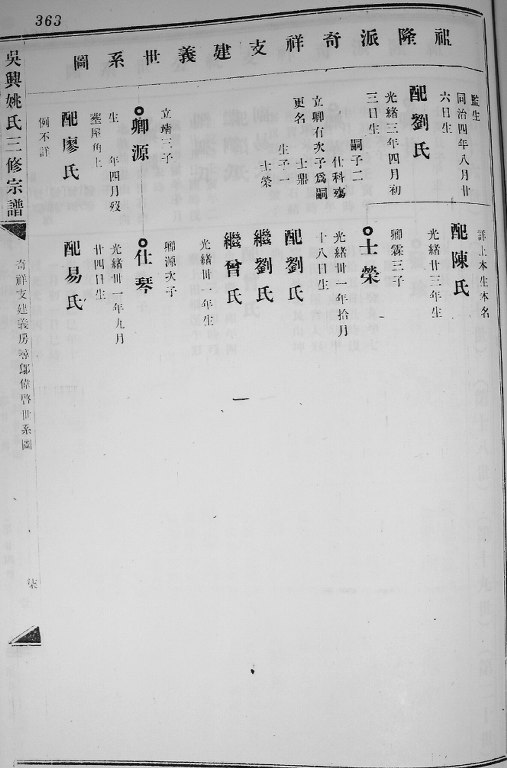 363
祖隆派奇祥支建義世系圖
監生
同治四年八月廿
六日生
配劉氏
光緒三年四月初
三日生
嗣子二
仕科殤
立卿有次子爲嗣
更名 士鼎
生子一
士榮
立靖三子
卿源
生 年四月歿
葬屋角上
配廖氏
例不詳
詳上本生本名
配陳氏
光緒廿三年生
卿霖三子
士榮
光緒廿一年拾月
十八日生
配劉氏
繼劉氏
繼曾氏
光緒卅一年生
卿源次子
仕琴
光緒卅一年九月
廿四日生
配易氏
吳興姚氏三修宗譜
奇祥支建義房 鄒偉啓世系圖
柒